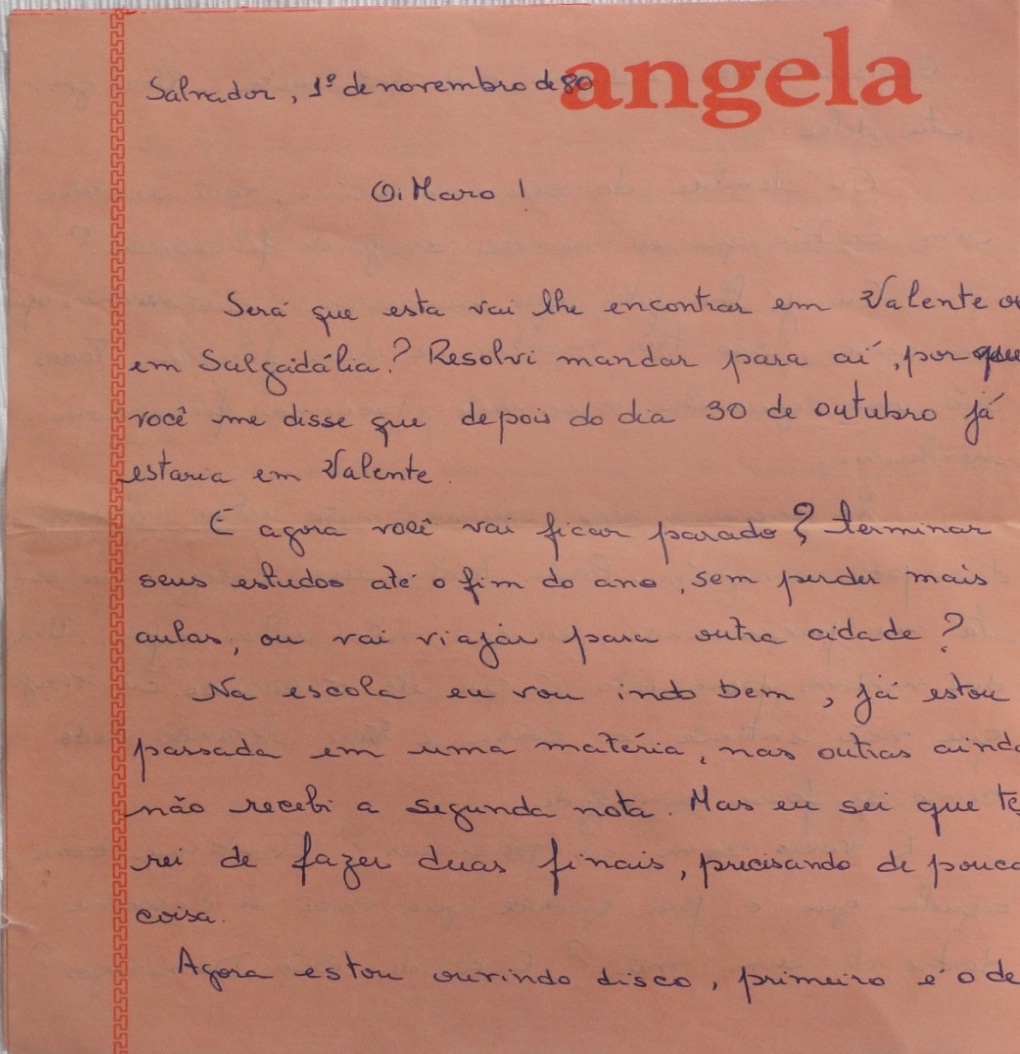 angela
Salvador, 1º de novembro de 80
Oi Maro!
Será que esta vai lhe encontrar em Valente ou
em Salgadália? Resolvi mandar para aí, por que
você me disse que depois do dia 30 de outubro já
estaria em Valente.
E agora você vai ficar parado? terminar
seus estudos até o fim do ano, sem perder mais
aulas, ou vai viajar para outra cidade?
Na escola eu vou indo bem, já estou
passada em uma matéria, nas outras ainda
não recebi a segunda nota. Mas eu sei que te
rei de fazer duas finais, precisando de pouca
coisa.
Agora estou ouvindo disco, primeiro é o de